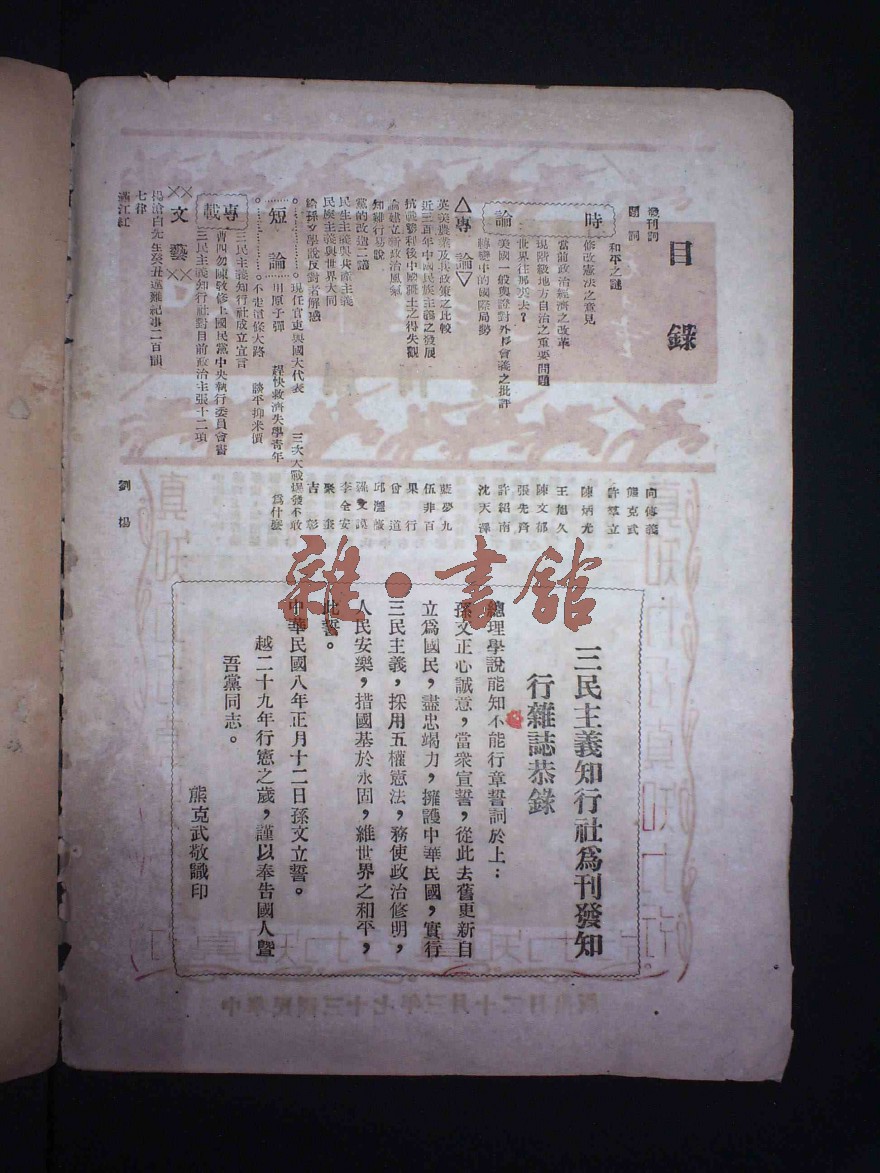 目錄
發刊詞
題詞
時論
和平之謎
修改憲法之意見
當前政治經濟之改革
現階級地方自治之重要問題
世界往那裏去？
美國一般輿證對外長會議之批評
轉變中的國際局勢
△專論▽
英美農業及其政策之比較
近三百年中國民族主義之發展
抗戰勝利後中國疆土之得失觀
論建立新政治風氣
知難行易說
黨的改造二議
民生主義與共產主義
民族主義與世界大同
給孫文學說反對者解惑
短論
現任官吏與國大代表
三次大戰爆發不敢
用原子彈
趕快救濟失學青年
為什麼
不走這條大路
談平抑米價
專載
三民主義知行社成立宣言
曹四勿陳敬修上國民黨中央執行委員會書
三民主義知行社對目前政治主張十二項
文藝
楊滄白先生癸丑逃難紀事二百韻
七律
滿江紅
向傳義
熊克武
許羣立
陳炳光
王旭久
陳文郁
張先齊
許紹南
沈天澤
藍夢九
伍非百
果行
曾道
邱灃
孫文謨
李全安
聚奎
吉彰
劉揚
三民主義知行社為刊發知
行雜誌恭錄
總理學說能知不能行章誓詞於上：
孫文正心誠意，當衆宣誓，從此去舊更新自
立為國民，盡忠竭力，擁護中華民國，實行
三民主義，採用五權憲法，務使政治修明，
人民安樂，措國基於永固，維世界之和平，
此誓。
中華民國八年正月十二日孫文立誓。
越二十九年行憲之歲，謹以奉告國人暨
吾黨同志。
熊克武敬識印
雜·書館
中華民國三十七年三月十二日出版